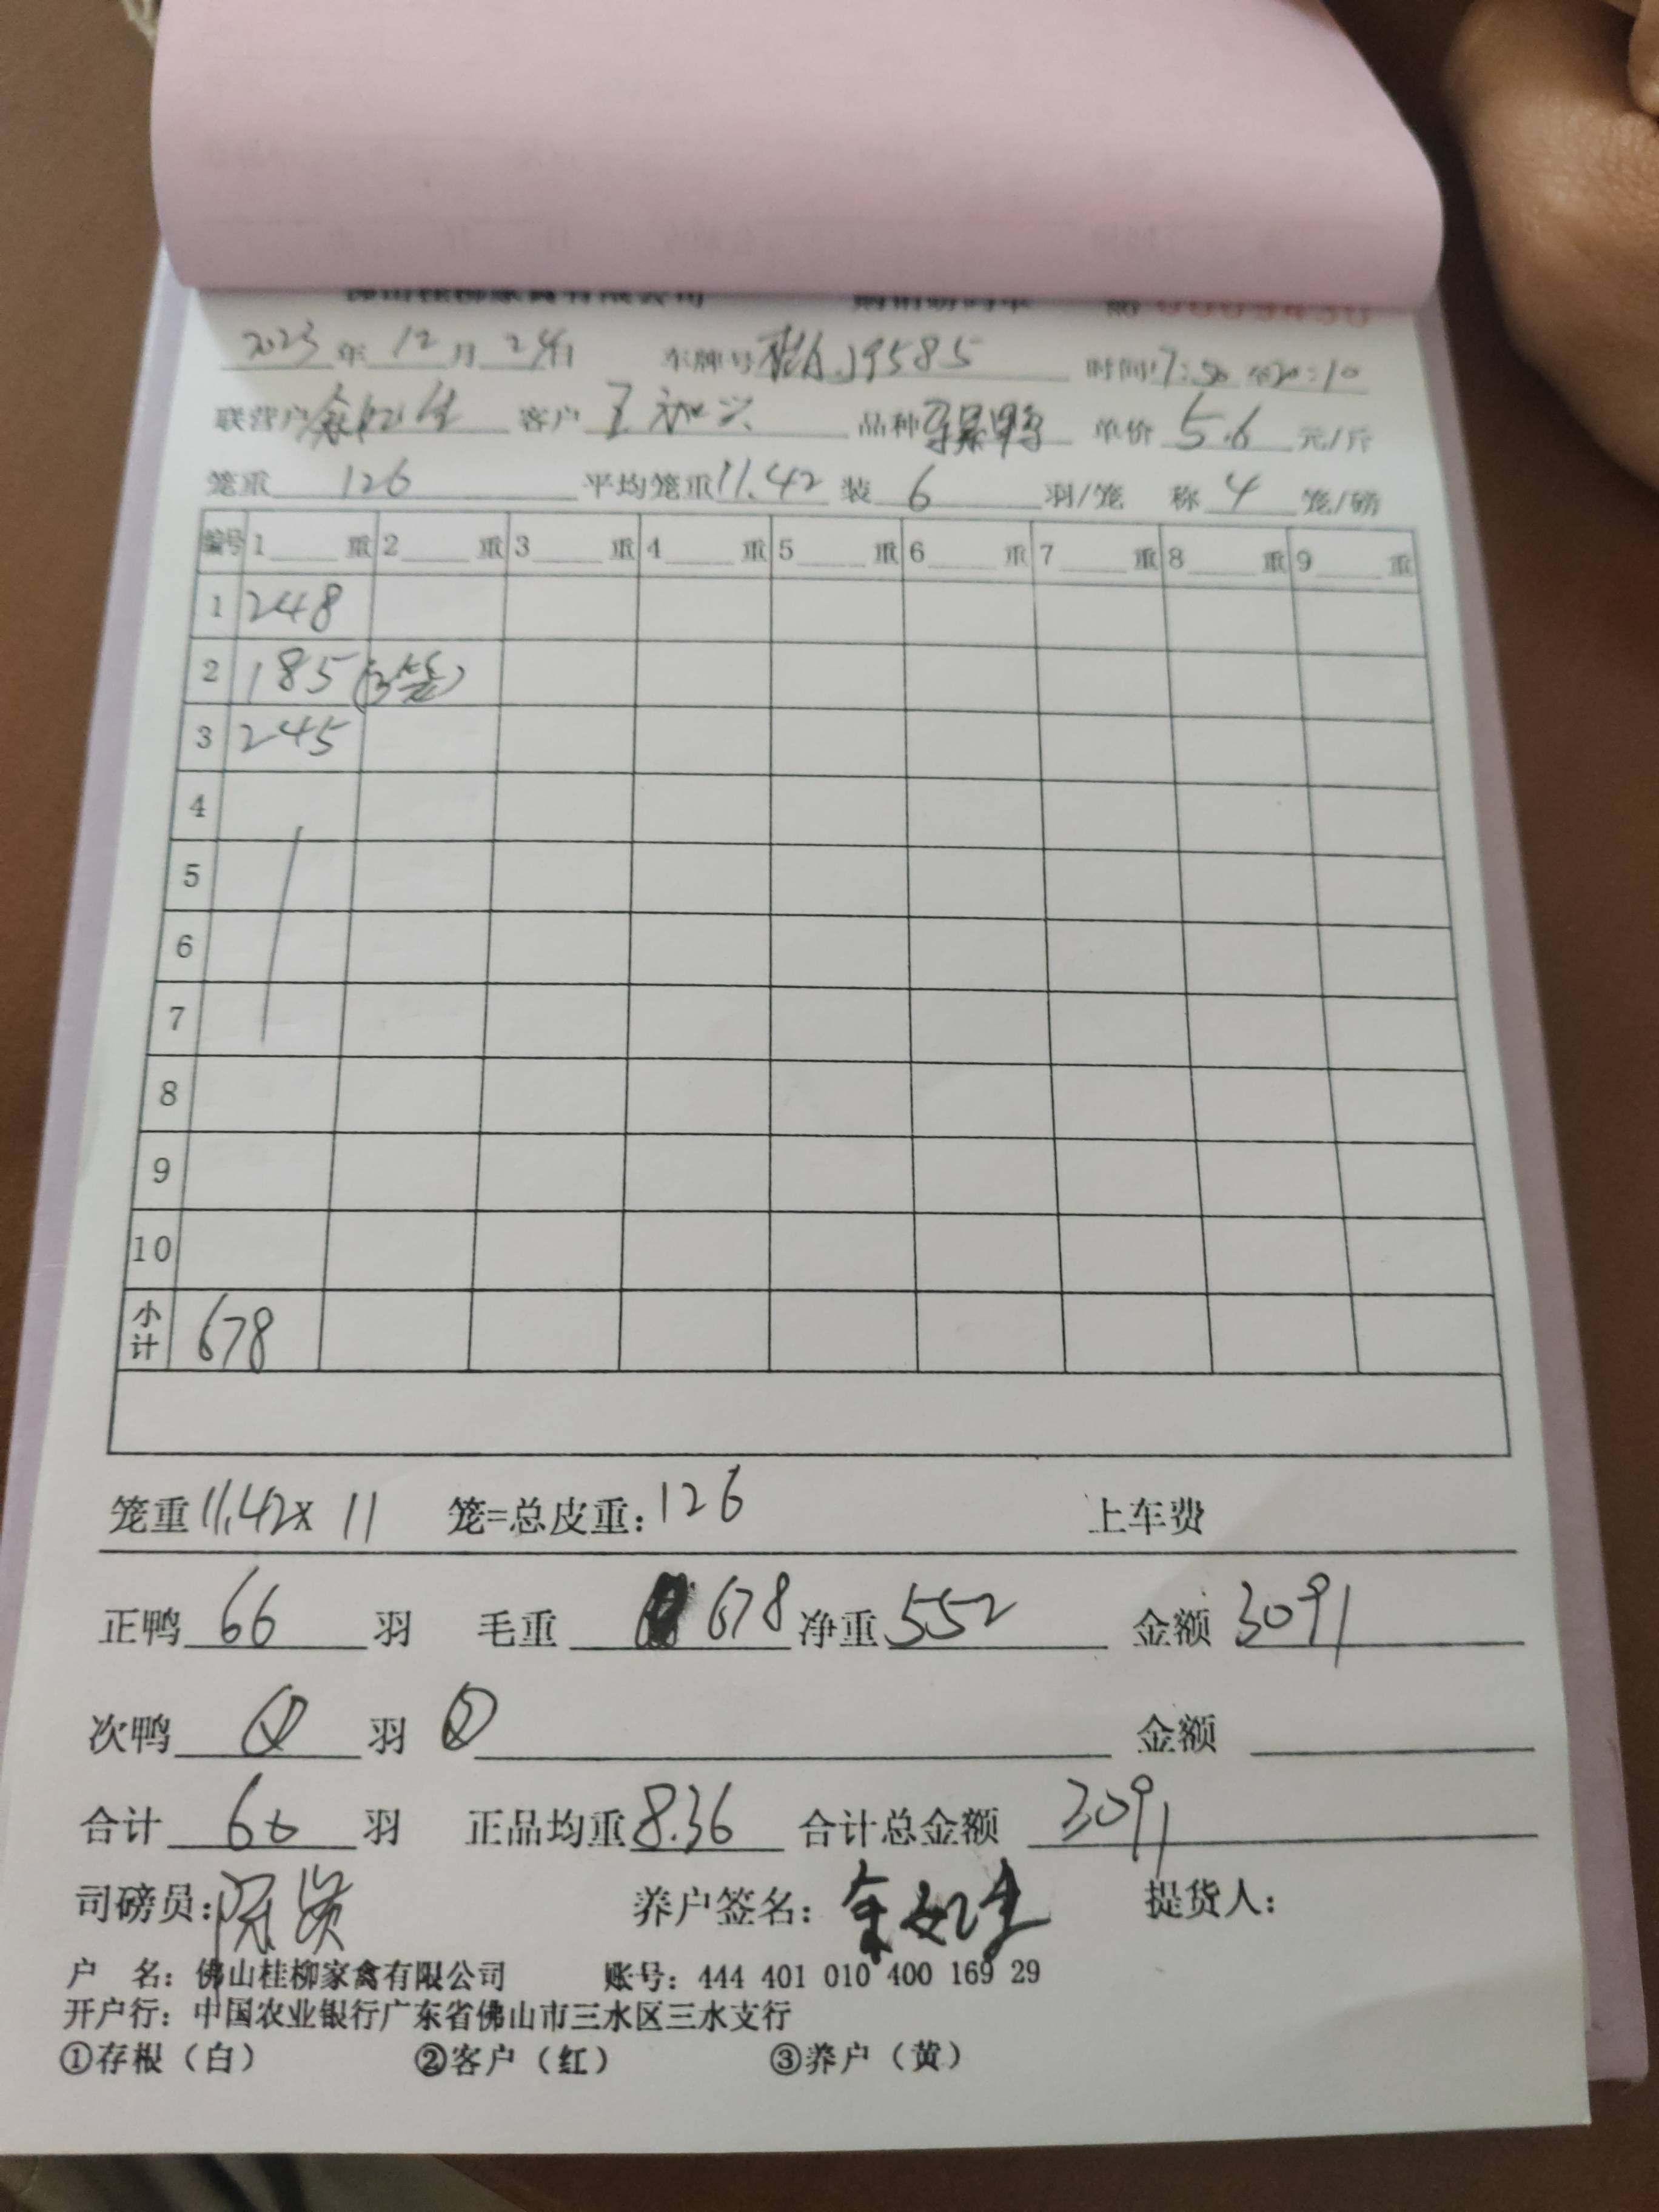 佛山桂柳家禽有限公司 No 0009430
2023年12月24日 车牌号 J9585 时间17:50 20:10
联营户余如生 客户王 品种 单价5.6元/斤
笼重126 平均笼重11.42 装6羽/笼 称4笼/磅
编号 1 重 2 重 3 重 4 重 5 重 6 重 7 重 8 重 9 重
1 248
2 185(3笼)
3 245
4
5
6
7
8
9
10
小计 678
笼重11.42x 11 笼=总皮重:126 上车费
正鸭66羽 毛重678 净重552 金额3091
次鸭 羽 金额
合计66羽 正品均重8.36 合计总金额3091
司磅员: 养户签名:余如生 提货人:
户 名:佛山桂柳家禽有限公司 账号:444 401 010 400 169 29
开户行:中国农业银行广东省佛山市三水区三水支行
①存根(白) ②客户(红) ③养户(黄)